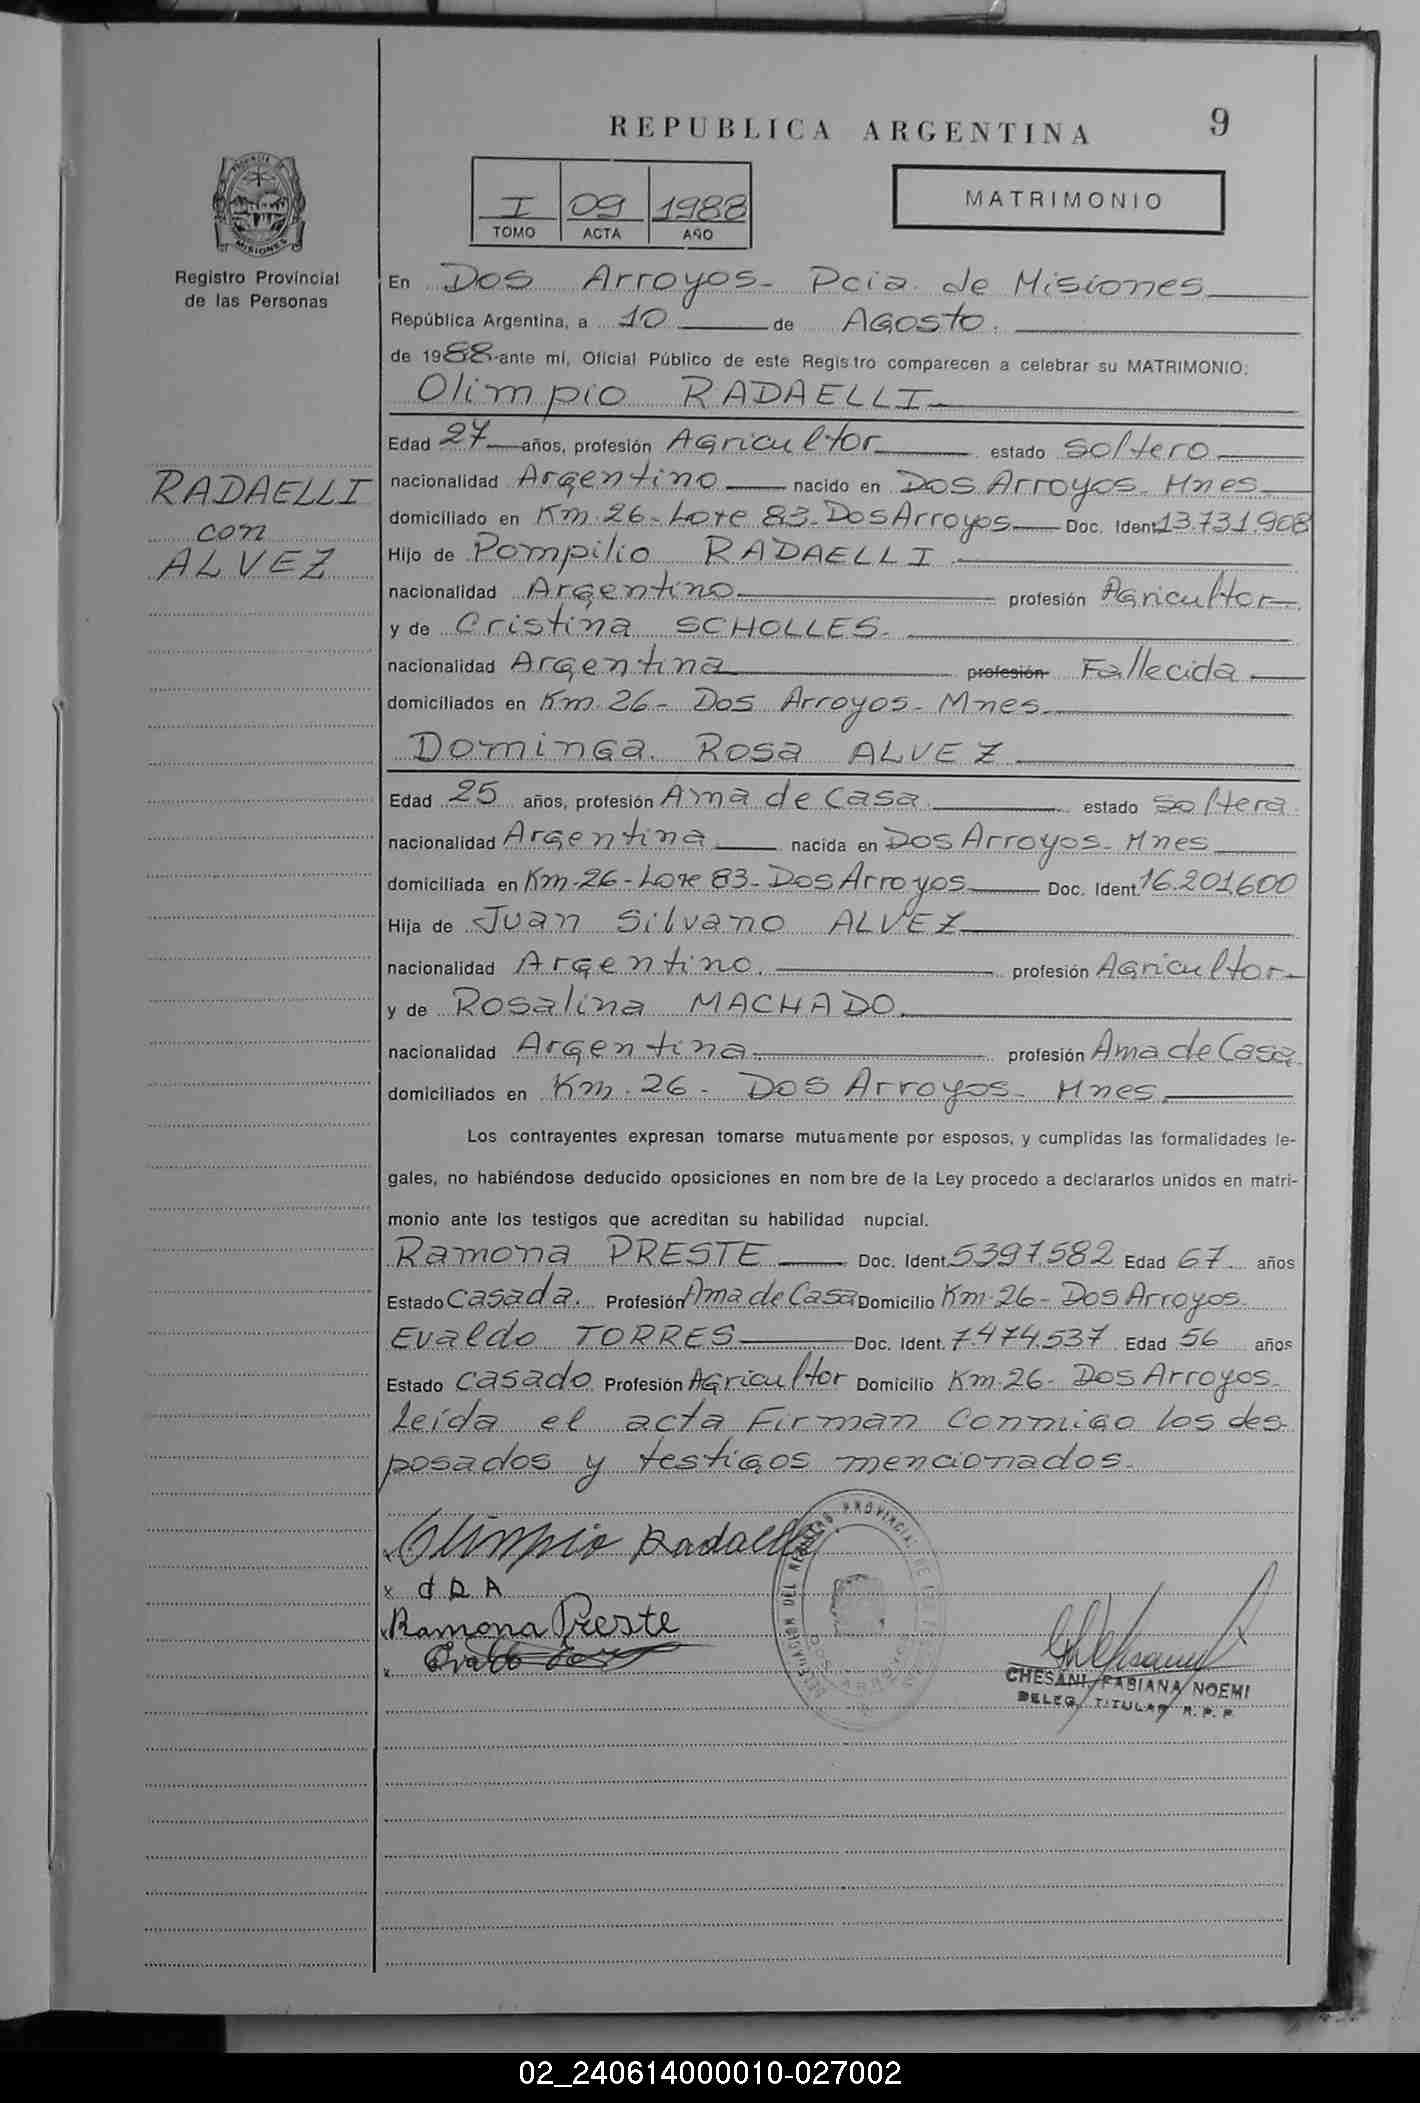 REPUBLICA ARGENTINA
9
I 09 1988
TOMO ACTA AÑO
MATRIMONIO
PROVINCIA DE
MISIONES
Registro Provincial
de las Personas
RADAELLI
con
ALVEZ
En Dos Arroyos - Pcia. de Misiones
República Argentina, a 10 de Agosto.
de 1988 ante mí, Oficial Público de este Registro comparecen a celebrar su MATRIMONIO:
Olimpio RADAELLI
Edad 27 años, profesión Agricultor estado soltero
nacionalidad Argentino nacido en Dos Arroyos - Mnes
domiciliado en Km. 26 - Lote 83 - Dos Arroyos Doc. Ident 13.731.908
Hijo de Pompilio RADAELLI
nacionalidad Argentino profesión Agricultor
y de Cristina SCHOLLES.
nacionalidad Argentina profesión Fallecida
domiciliados en Km. 26 - Dos Arroyos - Mnes.
Dominga Rosa ALVEZ
Edad 25 años, profesión Ama de Casa estado soltera
nacionalidad Argentina nacida en Dos Arroyos - Mnes
domiciliada en Km. 26 - Lote 83 - Dos Arroyos Doc. Ident. 16.201.600
Hija de Juan Silvano ALVEZ
nacionalidad Argentino. profesión Agricultor
y de Rosalina MACHADO
nacionalidad Argentina. profesión Ama de Casa
domiciliados en Km. 26 - Dos Arroyos - Mnes.
Los contrayentes expresan tomarse mutuamente por esposos, y cumplidas las formalidades le-
gales, no habiéndose deducido oposiciones en nombre de la Ley procedo a declararlos unidos en matri-
monio ante los testigos que acreditan su habilidad nupcial.
Ramona PRESTE Doc. Ident. 5397.582 Edad 67 años
Estado casada. Profesión Ama de Casa Domicilio Km. 26 - Dos Arroyos
Evaldo TORRES Doc. Ident. 7.474.537 Edad 56 años
Estado casado Profesión Agricultor Domicilio Km. 26 - Dos Arroyos
Leída el acta Firman Conmigo los des-
posados y testigos mencionados.
Olimpio Radaelli
x d R A
x Ramona Preste
x Evaldo Torres
DELEGACION DEL REGISTRO PROVINCIAL DE LAS PERSONAS
DOS ARROYOS
CHESANI, FABIANA NOEMI
DELEG. TITULAR R. P. P.
02_240614000010-027002